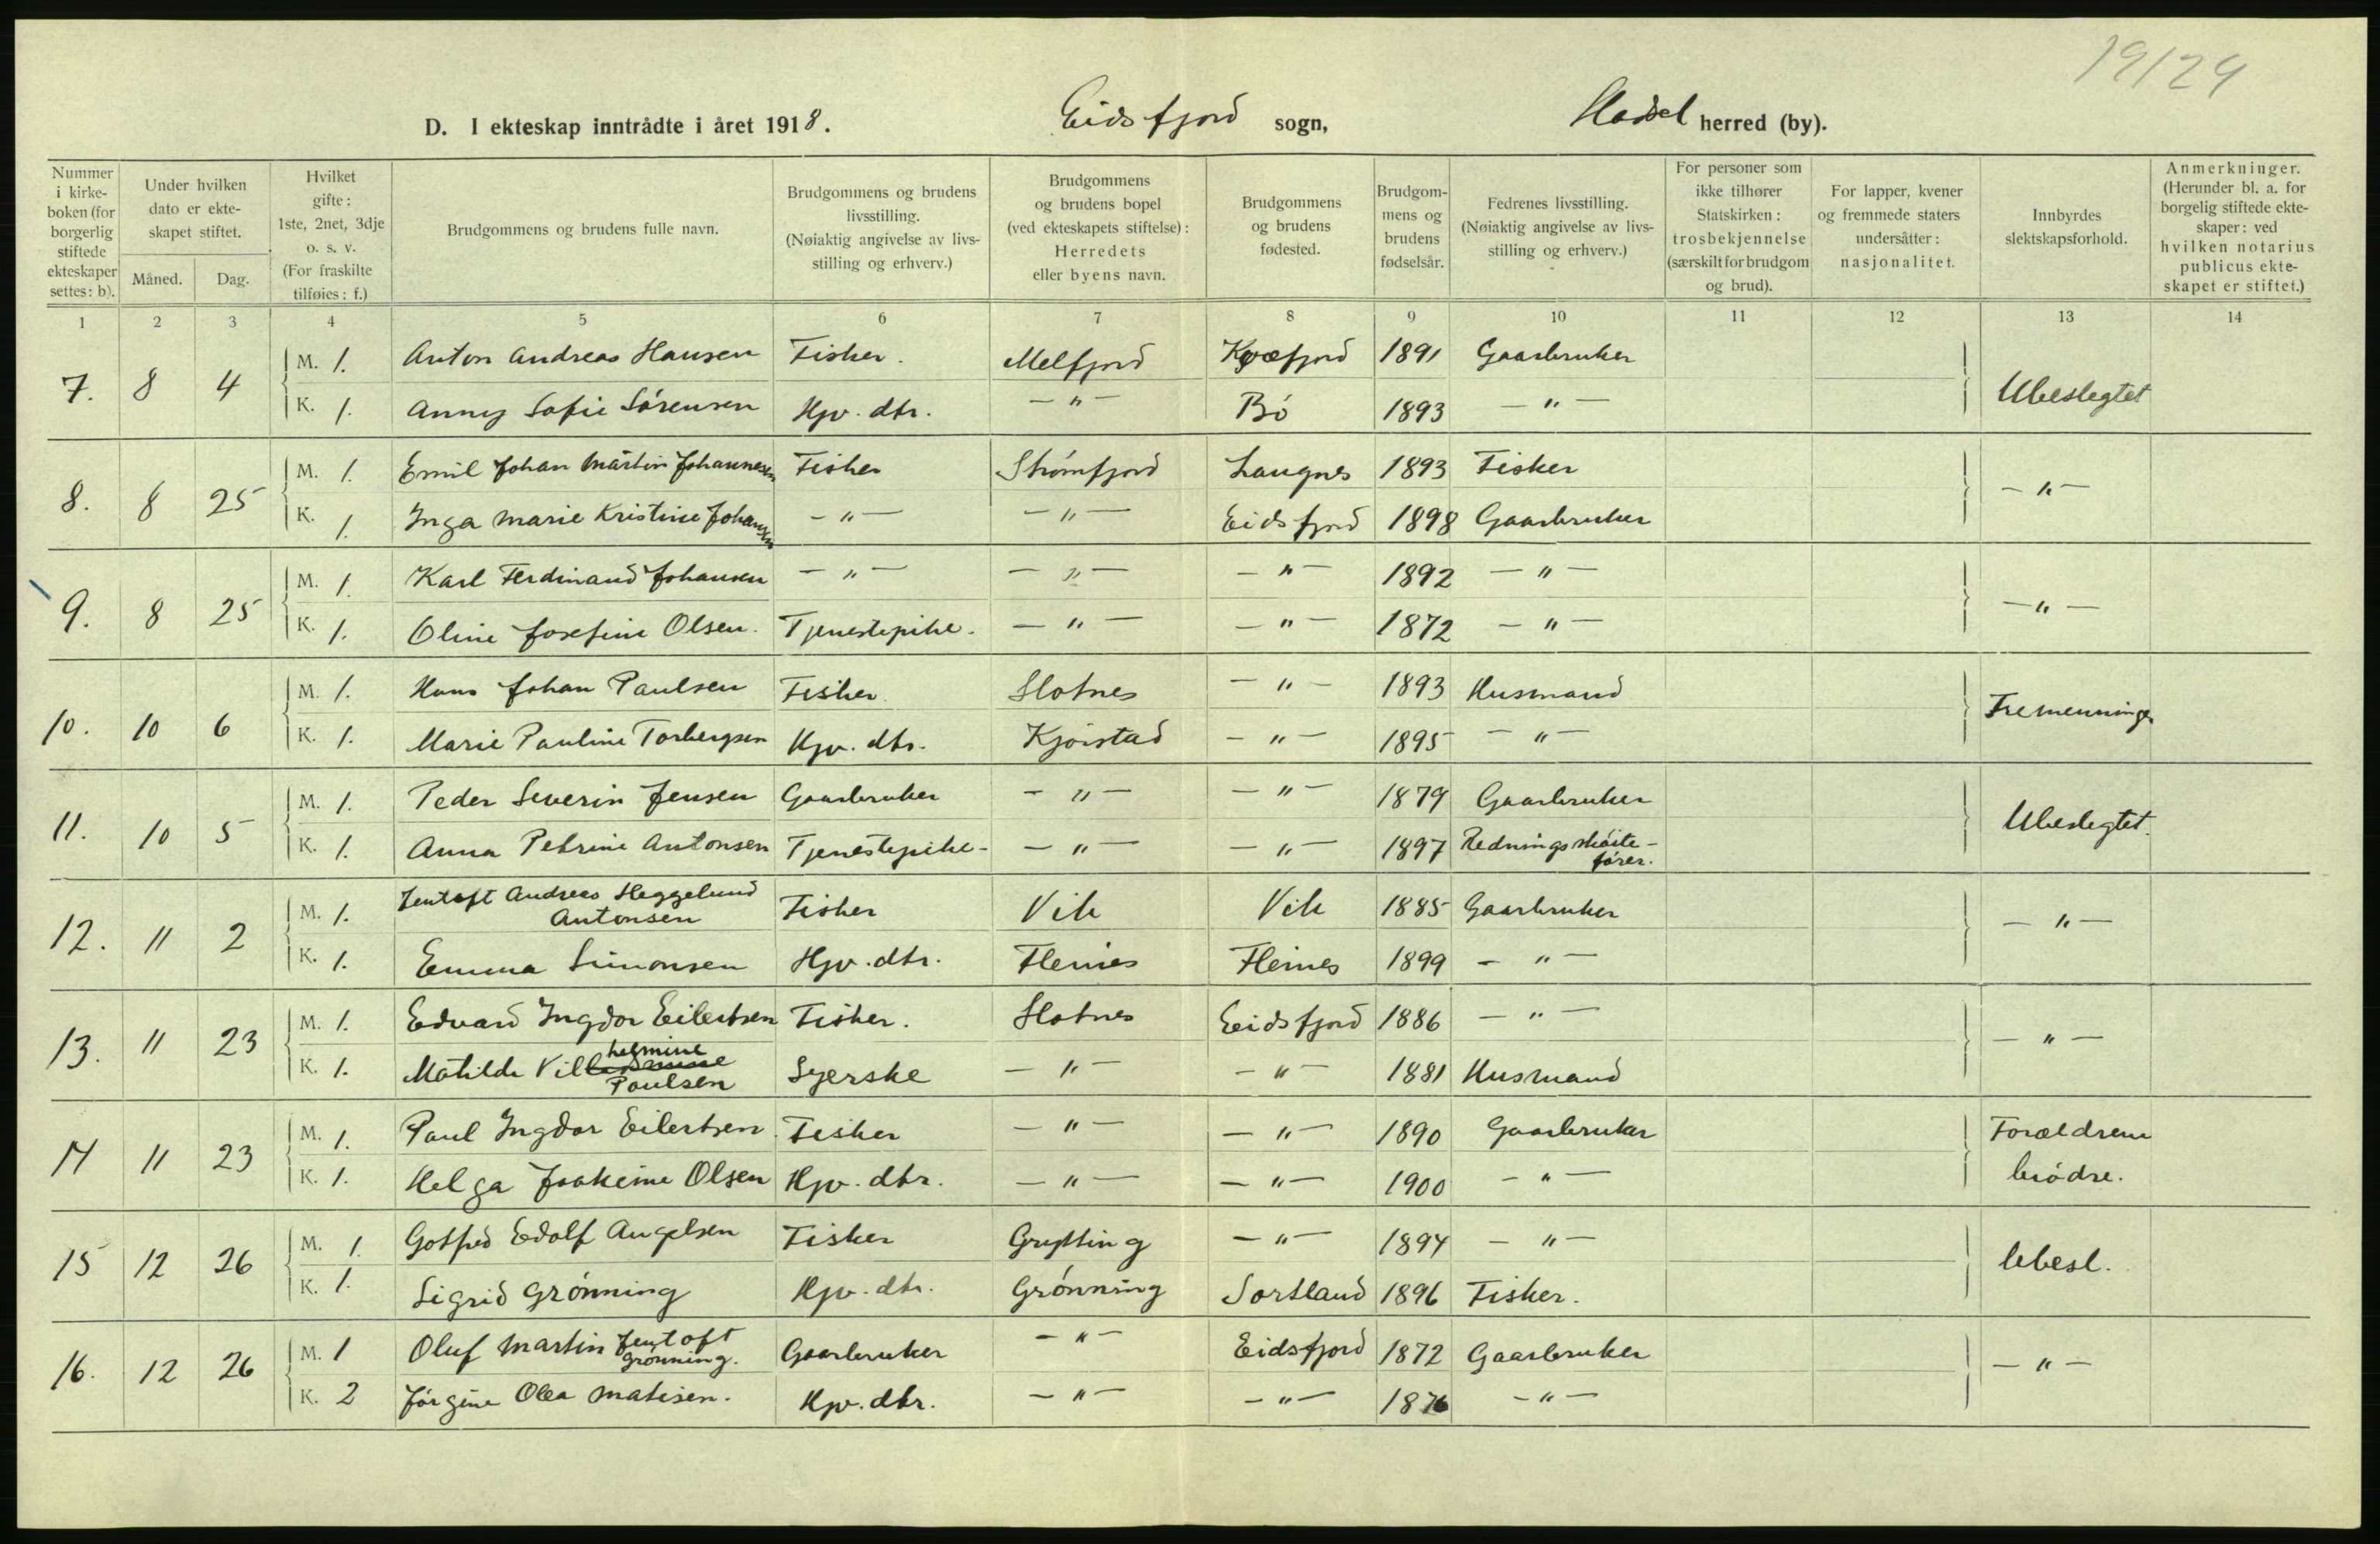 19/29
D. I ekteskap inntrådte i året 1918. Eidsfjord sogn, Hadsel herred (by).
Nummer i kirke-boken (for borgerlig stiftede ekteskaper settes: b). | Under hvilken dato er ekte-skapet stiftet. Måned. Dag. | Hvilket gifte: 1ste, 2net, 3dje o. s. v. (For fraskilte tilføies: f.) | Brudgommens og brudens fulle navn. | Brudgommens og brudens livsstilling. (Nøiaktig angivelse av livs-stilling og erhverv.) | Brudgommens og brudens bopel (ved ekteskapets stiftelse): Herredets eller byens navn. | Brudgommens og brudens fødested. | Brudgom-mens og brudens fødselsår. | Fedrenes livsstilling. (Nøiaktig angivelse av livs-stilling og erhverv.) | For personer som ikke tilhører Statskirken: trosbekjennelse (særskilt for brudgom og brud). | For lapper, kvener og fremmede staters undersåtter: nasjonalitet. | Innbyrdes slektskapsforhold. | Anmerkninger. (Herunder bl. a. for borgelig stiftede ekte-skaper: ved hvilken notarius publicus ekte-skapet er stiftet.)
1 2 3 4 5 6 7 8 9 10 11 12 13 14
7. 8 4 M. 1. Anton Andreas Hansen Fisker. Melfjord Kvæfjord 1891 Gaarbruker Ubeslegtet
K. 1. Anny Sofie Sørensen Hjv. dtr. — " — Bø 1893 — " —
8. 8 25 M. 1. Emil Johan Martin Johannesen Fisker Strømfjord Langnes 1893 Fisker — " —
K. 1. Inga Marie Kristine Johansen — " — — " — Eidsfjord 1898 Gaarbruker
9. 8 25 M. 1. Karl Ferdinand Johansen — " — — " — — " — 1892 — " — — " —
K. 1. Oline Josefine Olsen. Tjenestepike. — " — — " — 1872 — " —
10. 10 6 M. 1. Hans Johan Paulsen Fisker. Slotnes — " — 1893 Husmand Tremenninger
K. 1. Marie Pauline Torbergsen Hjv. dtr. Kjørstad — " — 1895 — " —
11. 10 5 M. 1. Peder Severin Jensen Gaarbruker — " — — " — 1879 Gaarbruker Ubeslegtet.
K. 1. Anna Petrine Antonsen Tjenestepike — " — — " — 1897 Redningsskøite-
fører.
12. 11 2 M. 1. Jentoft Andreas Heggelund
Antonsen Fisker Vik Vik 1885 Gaarbruker — " —
K. 1. Emma Simonsen Hjv. dtr. Fleines Fleines 1899 — " —
13. 11 23 M. 1. Edvard Ingdor Eilertsen Fisker. Slotnes Eidsfjord 1886 — " — — " —
K. 1. Matilde Vilhelmine
Paulsen Syerske — " — — " — 1881 Husmand
14 11 23 M. 1. Paul Ingdor Eilertsen Fisker — " — — " — 1890 Gaarbruker Forældrene
K. 1. Helga Joakime Olsen Hjv. dtr. — " — — " — 1900 — " — brødre.
15 12 26 M. 1. Gotfred Edolf Angelsen Fisker Grytting — " — 1894 — " — Ubesl.
K. 1. Sigrid Grønning Hjv. dtr. Grønning Sortland 1896 Fisker.
16. 12 26 M. 1 Oluf Martin Jentoft
Grønning. Gaarbruker — " — Eidsfjord 1872 Gaarbruker — " —
K. 2 Jørgine Olea Matisen. Hjv. dtr. — " — — " — 1876 — " —